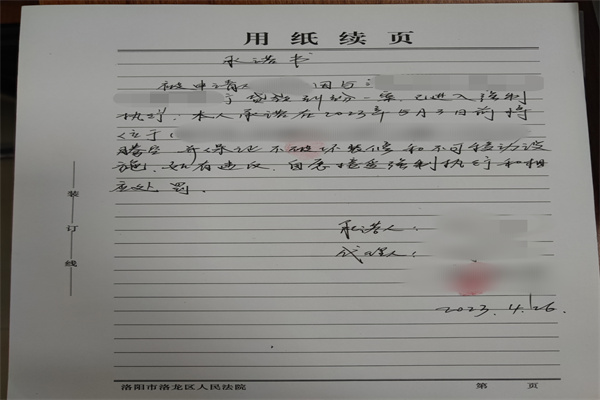 用纸续页
承诺书
被申请人 因与
贷款纠纷一案,已进入强制
执行.本人承诺在2023年5月3日前将
(位于
腾空 并保证不破坏装修和不可移动设
施.如有违反,自愿接受强制执行和相
应处罚.
承诺人:
代理人:
2023.4.26.
装订线
洛阳市洛龙区人民法院 第 页